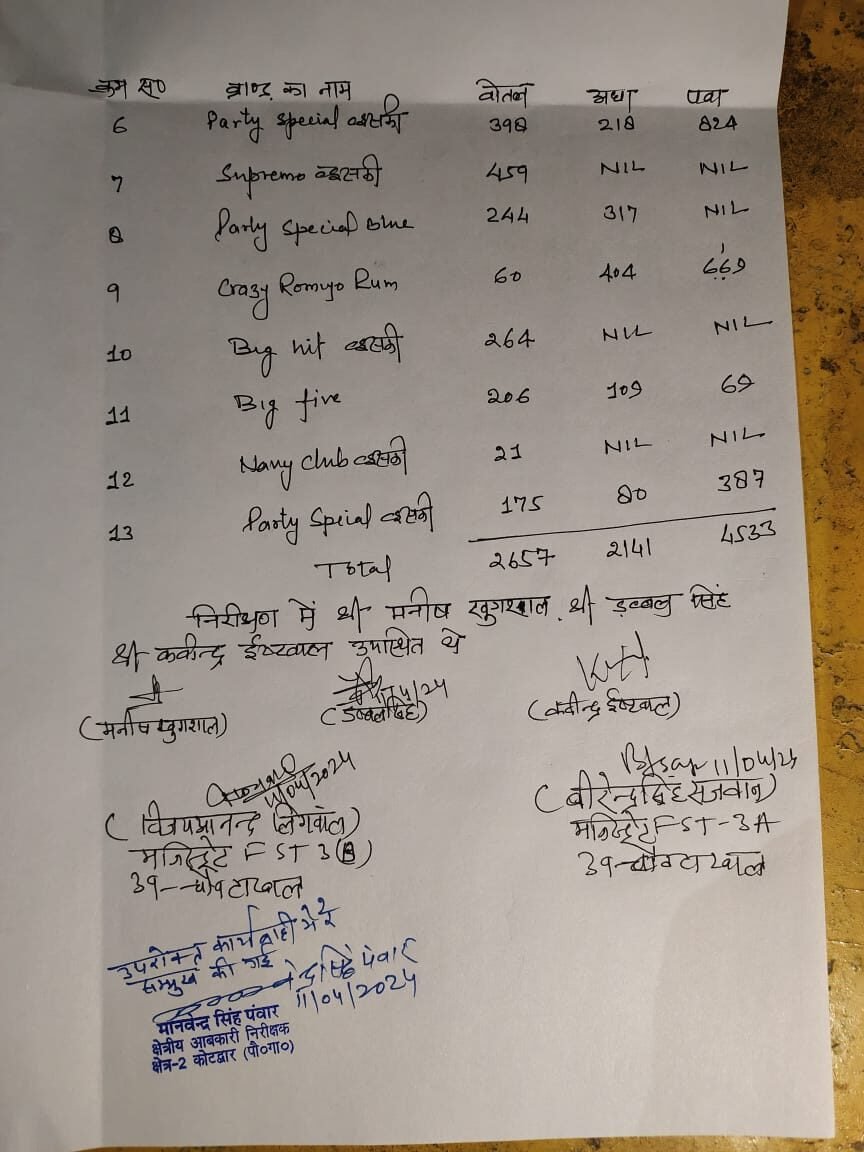 क्रम सं० ब्राण्ड का नाम वोतल अधा पव्वा
6 Party Special व्हिसकी 398 218 824
7 Supremo व्हिसकी 459 NIL NIL
8 Party Special Blue 244 317 NIL
9 Crazy Romyo Rum 60 404 669
10 Big hit व्हिसकी 264 NIL NIL
11 Big five 206 109 69
12 Navy Club व्हिसकी 21 NIL NIL
13 Party Special व्हिसकी 175 80 387
Total 2657 2141 4533
निरीक्षण में श्री मनीष खुगशाल, श्री डब्बलु सिंह
श्री कवीन्द्र ईष्टवाल उपस्थित थे
(मनीष खुगशाल) (डब्बलु सिंह) (कवीन्द्र ईष्टवाल)
11/04/2024
(विजयआनन्द लिंगवाल)
मजिस्ट्रेट FST 3(B)
39--चौबटाखाल
11/04/24
(बीरेन्द्र सिंह सजवान)
मजिस्ट्रेट FST-3A
39-चौबटाखाल
उपरोक्त कार्यवाही मेरे
सम्मुख की गई
11/04/2024
मानवेन्द्र सिंह पंवार
क्षेत्रीय आबकारी निरीक्षक
क्षेत्र-2 कोटद्वार (पौ०गा०)